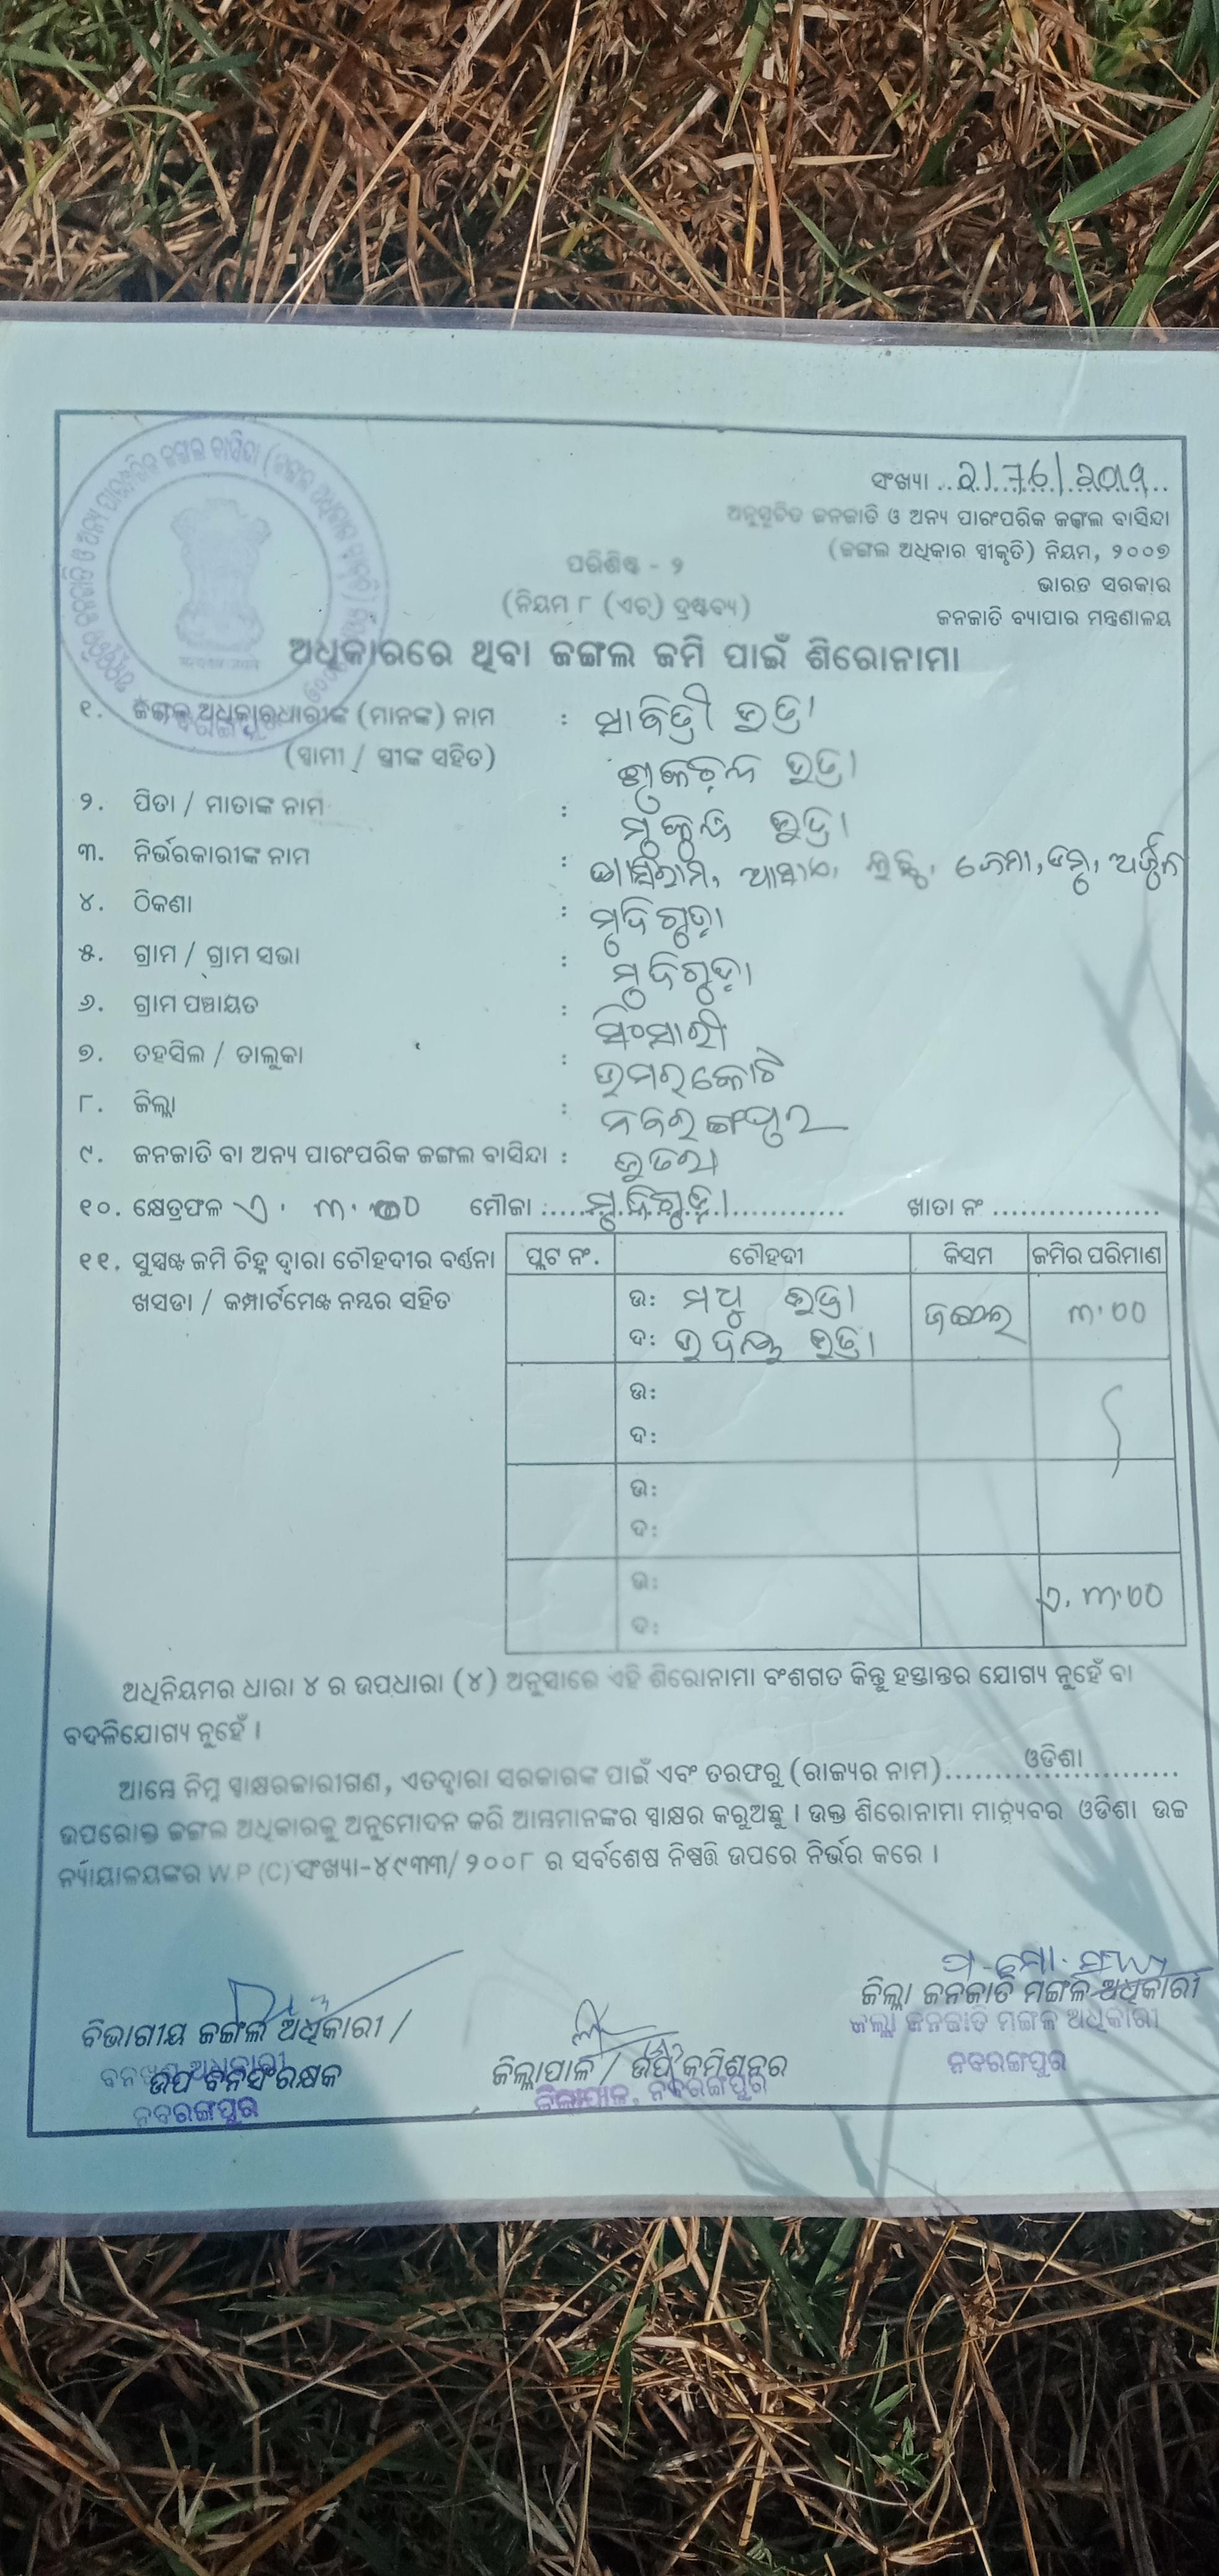 ସଂଖ୍ୟା ..2176/2019..
ଅନୁସୂଚିତ ଜନଜାତି ଓ ଅନ୍ୟ ପାରଂପରିକ ଜଙ୍ଗଲ ବାସିନ୍ଦା
(ଜଙ୍ଗଲ ଅଧିକାର ସ୍ୱୀକୃତି) ନିୟମ, ୨୦୦୭
ପରିଶିଷ୍ଟ - ୨
ଭାରତ ସରକାର
(ନିୟମ ୮ (ଏଚ୍) ଦ୍ରଷ୍ଟବ୍ୟ)
ଜନଜାତି ବ୍ୟାପାର ମନ୍ତ୍ରଣାଳୟ
ଅଧିକାରରେ ଥିବା ଜଙ୍ଗଲ ଜମି ପାଇଁ ଶିରୋନାମା
୧. ଜଙ୍ଗଲ ଅଧିକାରଧାରୀଙ୍କ (ମାନଙ୍କ) ନାମ : ସାବିତ୍ରୀ ଭତ୍ରା
(ସ୍ୱାମୀ / ସ୍ତ୍ରୀଙ୍କ ସହିତ) ଭତ୍ରା
୨. ପିତା / ମାତାଙ୍କ ନାମ : ଭତ୍ରା
୩. ନିର୍ଭରକାରୀଙ୍କ ନାମ : ଅର୍ଜୁନ
୪. ଠିକଣା : ମୁଦିଗୁଡ଼ା
୫. ଗ୍ରାମ / ଗ୍ରାମ ସଭା : ମୁଦିଗୁଡ଼ା
୬. ଗ୍ରାମ ପଞ୍ଚାୟତ : ସିଂସାରୀ
୭. ତହସିଲ / ତାଲୁକା : ଉମରକୋଟ
୮. ଜିଲ୍ଲା : ନବରଙ୍ଗପୁର
୯. ଜନଜାତି ବା ଅନ୍ୟ ପାରଂପରିକ ଜଙ୍ଗଲ ବାସିନ୍ଦା :
୧୦. କ୍ଷେତ୍ରଫଳ ଏ. ୩.୦୦ ମୌଜା ..... ମୁଦିଗୁଡ଼ା ..... ଖାତା ନଂ ..................
୧୧. ସୁସ୍ପଷ୍ଟ ଜମି ଚିହ୍ନ ଦ୍ୱାରା ଚୌହଦୀର ବର୍ଣ୍ଣନା
ଖସଡା / କମ୍ପାର୍ଟମେଣ୍ଟ ନମ୍ବର ସହିତ
ପ୍ଲଟ ନଂ. ଚୌହଦୀ କିସମ ଜମିର ପରିମାଣ
ଉ: ମଧୁ ଭତ୍ରା ଜଙ୍ଗଲ ୩.୦୦
ଦ: ଭତ୍ରା
ଉ:
ଦ:
ଉ:
ଦ:
ଉ: ଏ. ୩.୦୦
ଦ:
ଅଧିନିୟମର ଧାରା ୪ ର ଉପଧାରା (୪) ଅନୁସାରେ ଏହି ଶିରୋନାମା ବଂଶଗତ କିନ୍ତୁ ହସ୍ତାନ୍ତର ଯୋଗ୍ୟ ନୁହେଁ ବା
ବଦଳିଯୋଗ୍ୟ ନୁହେଁ ।
ଆମ୍ଭେ ନିମ୍ନ ସ୍ୱାକ୍ଷରକାରୀଗଣ, ଏତଦ୍ଦ୍ୱାରା ସରକାରଙ୍କ ପାଇଁ ଏବଂ ତରଫରୁ (ରାଜ୍ୟର ନାମ)........ଓଡିଶା........
ଉପରୋକ୍ତ ଜଙ୍ଗଲ ଅଧିକାରକୁ ଅନୁମୋଦନ କରି ଆମ୍ଭମାନଙ୍କର ସ୍ୱାକ୍ଷର କରୁଅଛୁ । ଉକ୍ତ ଶିରୋନାମା ମାନ୍ୟବର ଓଡିଶା ଉଚ୍ଚ
ନ୍ୟାୟାଳୟଙ୍କର W.P (C) ସଂଖ୍ୟା-୪୯୩୩/୨୦୦୮ ର ସର୍ବଶେଷ ନିଷ୍ପତ୍ତି ଉପରେ ନିର୍ଭର କରେ ।
ଜିଲ୍ଲା ଜନଜାତି ମଙ୍ଗଳ ଅଧିକାରୀ
ଜିଲ୍ଲା ଜନଜାତି ମଙ୍ଗଳ ଅଧିକାରୀ
ନବରଙ୍ଗପୁର
ବିଭାଗୀୟ ଜଙ୍ଗଲ ଅଧିକାରୀ /
ବନଖଣ୍ଡ ଅଧିକାରୀ
ଉପ ବନସଂରକ୍ଷକ
ନବରଙ୍ଗପୁର
ଜିଲ୍ଲାପାଳ / ଉପ କମିଶ୍ନର
ଜିଲ୍ଲାପାଳ, ନବରଙ୍ଗପୁର